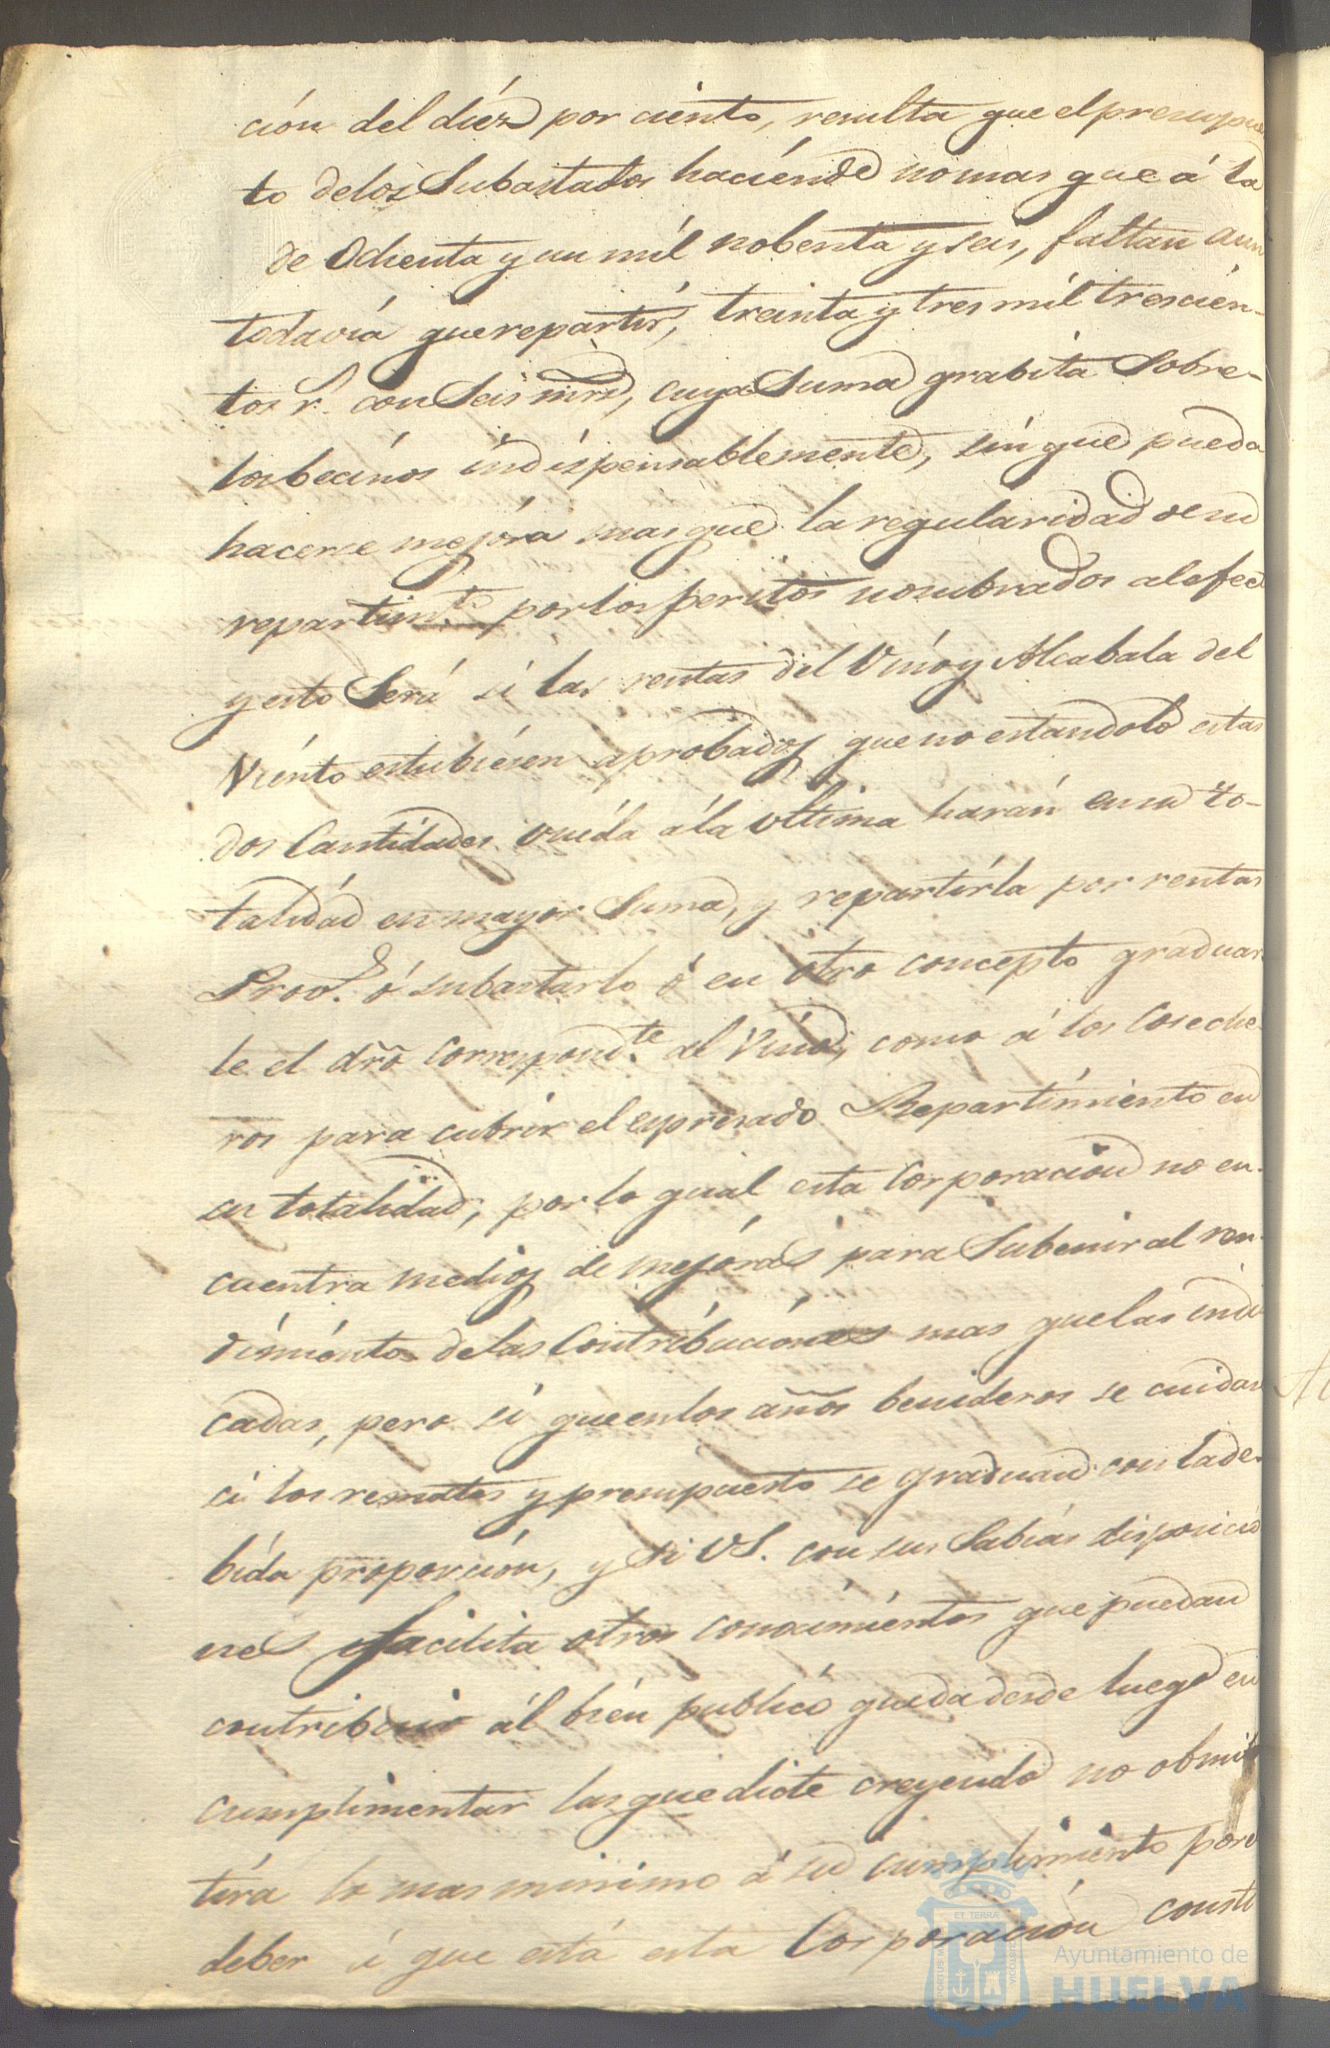 ción del diéz por ciento, resulta que el presupues
to delos Subastados haciéndo nomas que á la
de Ochenta y un mil nobenta y seis, faltan aun
todavía que repartir, treinta y tres mil trescién-
tos r.^s con Seis mrs, cuya Suma grabita Sobre-
los becinos indispensablemente, sin que pueda
hacerse mejóra mas que la regularidad de su
repartim.^to por los peritos nombrados al efec
y esto Será si las rentas del Vino y Alcabala del
Viénto estubiésen aprobadas, que no estandolo estas
dos Cantidades unida á la ultima harán en su to-
talidád en mayor Suma, y repartirla por rentas
Prov.^s ó subastarlo ó en otro concepto graduar
le el dro correspond.^te al Vino, como á los Coseche
ros para cubrir el espresado Repartimiento en
su totalidad, por lo qual esta Corporacion no en-
cuentra medios de mejóras para Subenir al ren-
dimiénto delas Contribuciónes mas que las indi
cadas, pero si que en los años benideros se cuidará
si los remates y presupuesto se graduan con la de-
bida proporción, y si VS. con sus Sabias disposicio
nes facilita otros conocimientos que puedan
contribuir ál bién publico queda desde luego en
cumplimentar las que dicte creyendo no obmi
tirá lo mas minimo á su cumplimiento por el
deber á que está esta Corporación consti
Ayuntamiento de
HUELVA